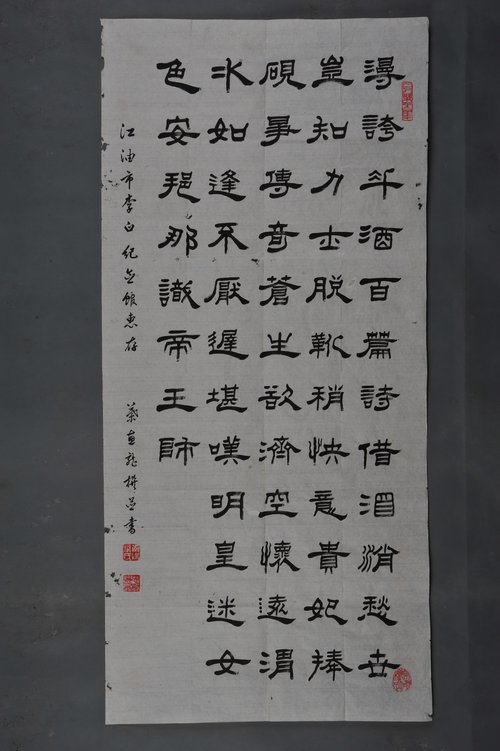 漫誇斗酒百篇詩借酒消愁世
豈知力士脫靴稍快意貴妃捧
硯爭傳奇蒼生欲濟空懷遠渭
水如逢不厭遲堪嘆明皇迷女
色安那識帝王師
江油市李白紀念館惠存
撰並書